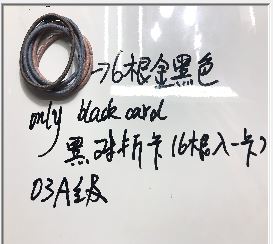 →6根金黑色
only black card
黑对折卡(6根入一卡)
03A级